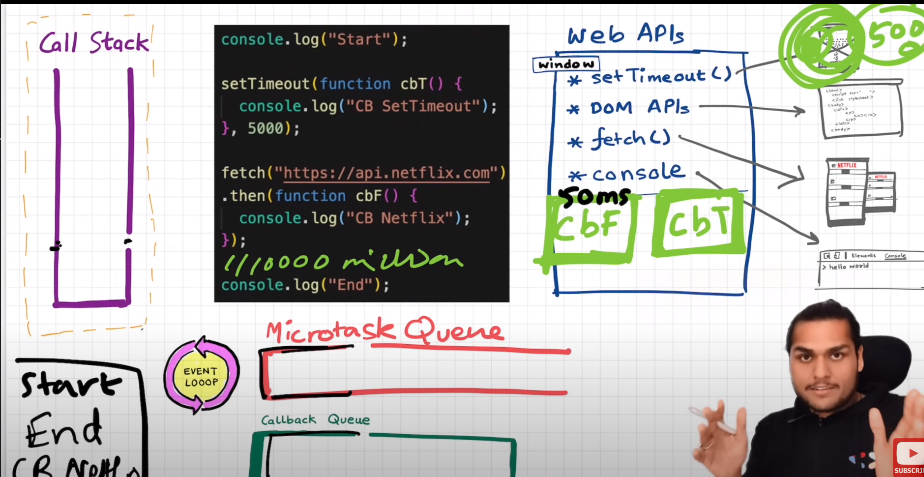 Call Stack
console.log("Start");
setTimeout(function cbT() {
console.log("CB SetTimeout");
}, 5000);
fetch("https://api.netflix.com")
.then(function cbF() {
console.log("CB Netflix");
});
million
console.log("End");
Web APIs
window
* setTimeout()
* DOM APIs
* fetch()
* console
50ms
CbF
CbT
500
NETFLIX
NETFLIX
Elements Console
> hello world
Microtask Queue
EVENT
LOOOP
Callback Queue
Start
End
CB
SUBSCRI